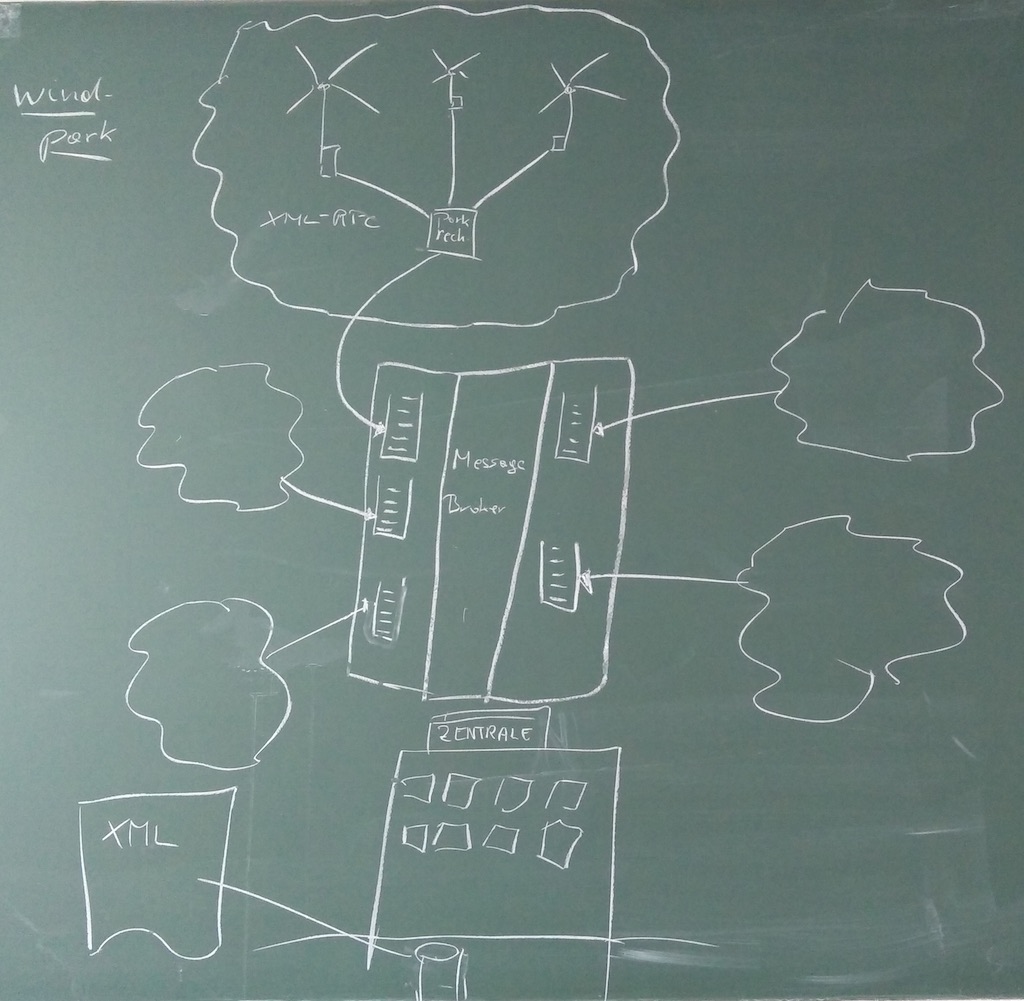 Wind-
park
XML-RPC
Park
rech
Message
Broker
ZENTRALE
XML